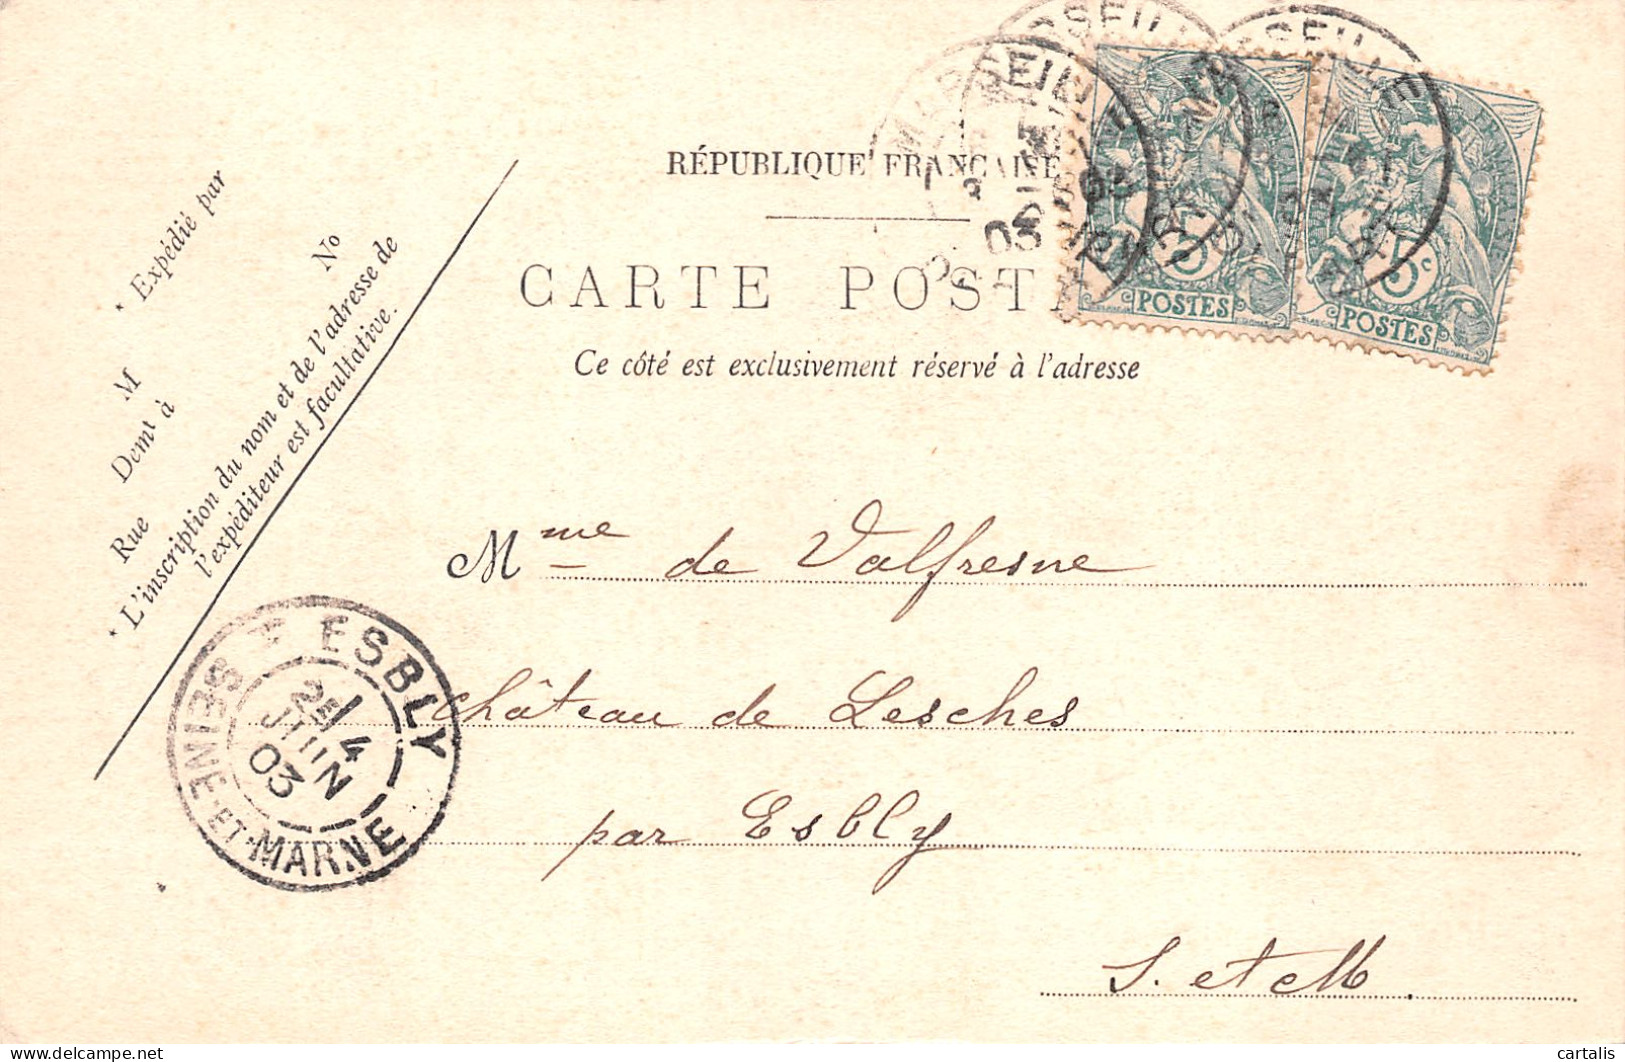 RÉPUBLIQUE FRANÇAISE
CARTE POST
Ce côté est exclusivement réservé à l'adresse
* Expédié par
M
Demt à
Rue No
* L'inscription du nom et de l'adresse de
l'expéditeur est facultative.
5c
POSTES
5c
POSTES
Mme de Valfresne
Château de Lesches
par Esbly
S. et M.
ESBLY
SEINE-ET-MARNE
4
JUIN
03
cartalis